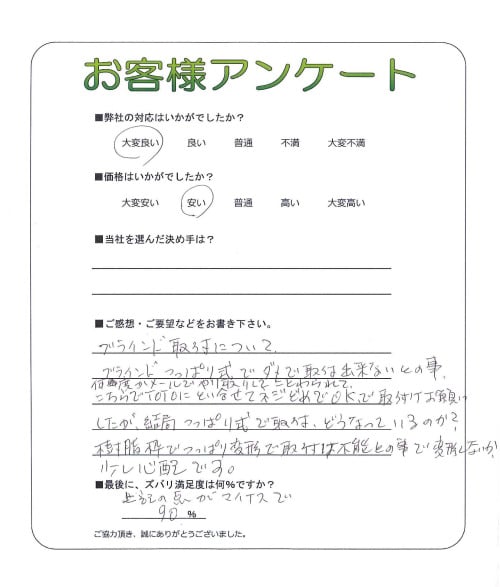 お客様アンケート
■弊社の対応はいかがでしたか？
大変良い 良い 普通 不満 大変不満
■価格はいかがでしたか？
大変安い 安い 普通 高い 大変高い
■当社を選んだ決め手は？
■ご感想・ご要望などをお書き下さい。
ブラインド取付について、
ブラインドつっぱり式でダメで取付出来ないとの事、
何度かメールでやり取りしてことわられて、
こちらでTOTOにとい合せてネジどめでOKで取付けお願い
したが、結局つっぱり式で取付、どうなっているのか？
樹脂枠でつっぱり変形で取付は不能との事で変形しないか
少し心配です。
■最後に、ズバリ満足度は何％ですか？
上記の点がマイナスで
90 ％
ご協力頂き、誠にありがとうございました。